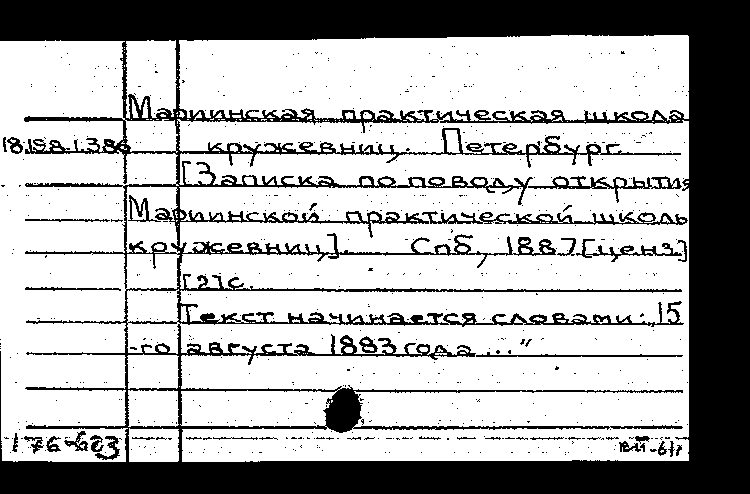 Мариинская практическая школа
18.158.1.386 кружевниц. Петербург.
[Записка по поводу открытия
Мариинской практической школы
кружевниц]. Спб, 1887[ценз]
[2]с.
Текст начинается словами: „15
-го августа 1883 года ..."
176-623